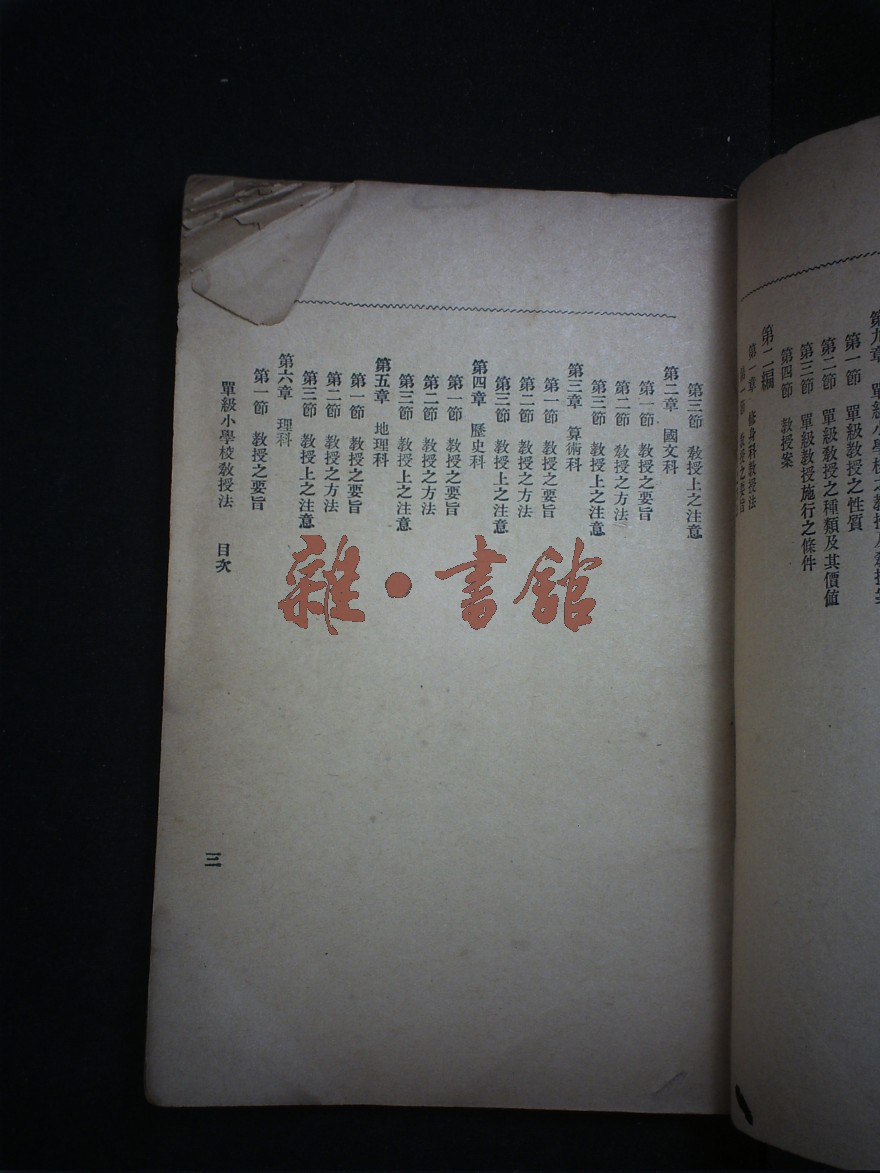 第九章 單級小學校之教授及教授案
第一節 單級教授之性質
第二節 單級教授之種類及其價值
第三節 單級教授施行之條件
第四節 教授案
第二編
第一章 修身科教授法
第一節 教授之要旨
第三節 教授上之注意
第二章 國文科
第一節 教授之要旨
第二節 教授之方法
第三節 教授上之注意
第三章 算術科
第一節 教授之要旨
第二節 教授之方法
第三節 教授上之注意
第四章 歷史科
第一節 教授之要旨
第二節 教授之方法
第三節 教授上之注意
第五章 地理科
第一節 教授之要旨
第二節 教授之方法
第三節 教授上之注意
第六章 理科
第一節 教授之要旨
單級小學校教授法 目次
三
雜·書館